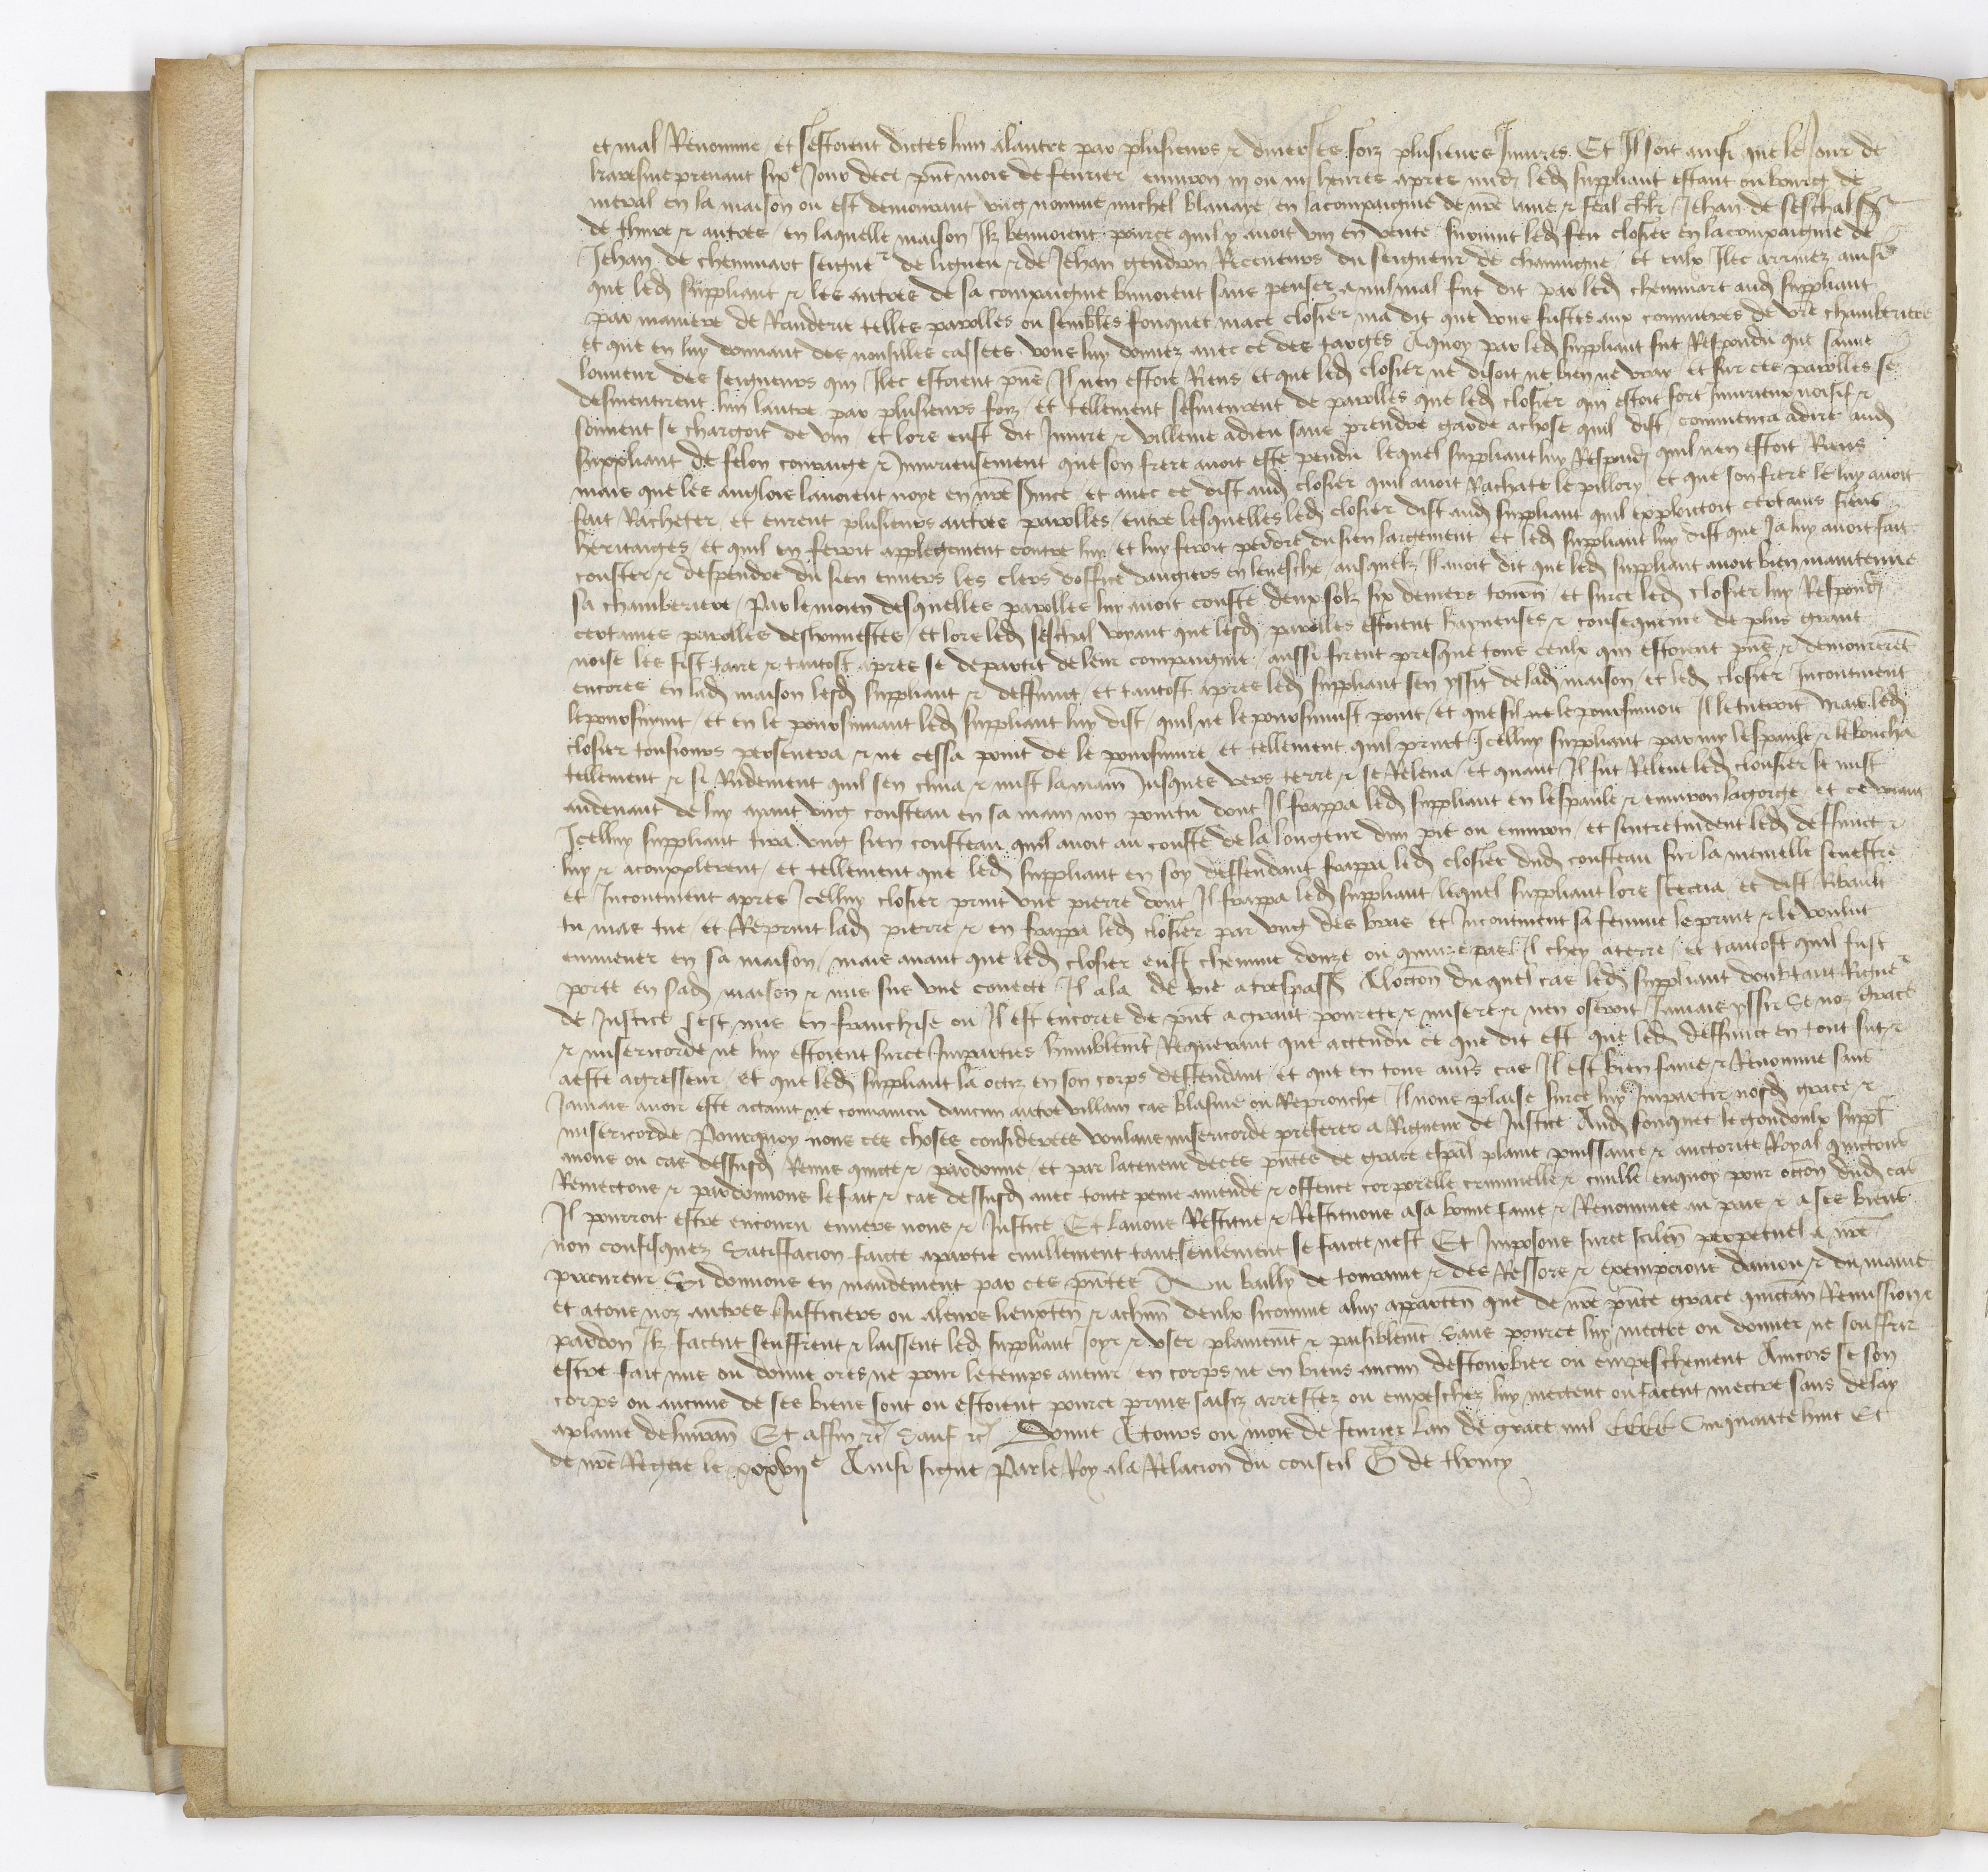 et mal Renomme et sestoient dictes lun alautre par plusieurs & diverses foiz plusieurs Iniures Et Il soit ainsi que le Jour de
karesmeprenant sixe Jour de ce pnt mois de feurier enuiron iij ou iiij heures apres midi led suppliant estant ou bourg de
meral en la maison ou est demourant ung nomme michel blanaye en la compaignie de nre ame & feal chlr Jehan de seschal sr
de thure & autres en laquelle maison Ilz beuuoient pource quil y auoit vin en vente suruint led feu closier en la compaignie de
Jehan de chemmart seigner de ligneu & de Jehan gendron Receueurs du seigneur de chauuigne et eulx Ilec arriuez ainsi
que led suppliant & les autres de sa compaignie buuoient sans penser a nul mal fut dit par led chemmart aud suppliant
par maniere de Rauderie telles parolles ou sembles fouquet mace closier ma dit que vous fustes aux commeres de vre chamberiere
et que en luy donnant des nousilles cassees vous luy donnez auec ce des targes Aquoy par led suppliant fut Respondu que sauue
lonneur des seigneurs qui Ilec estoient pns Il nen estoit Riens et que led closier ne disoit ne bien ne vray et sur ces parolles se
desmentirent lun lautre par plusieurs foiz et tellement sesmeurent de parolles que led closier qui estoit fort Iniurieux noisif &
souuent se chargoit de vin et lors eust dit Iniure & villenie adieu sans prendre garde achose quil dist commenca adire aud
suppliant de felon couraige & Iniurieusement que son frere auoit este pendu lequel suppliant luy Respondi quil nen estoit Riens
mais que les anglois lauoient noye en nre seruice et auec ce dist aud closier quil auoit Rachate le pillory et que son frere le luy auoit
fait Racheter et eurent plusieurs autres parolles entre lesquelles led closier dist aud suppliant quil exploictoit certains siens
heritaiges et quil en feroit applegement contre luy et luy feroit perdre du sien largement et led suppliant luy dist que Ja luy auoit fait
couster & despendre du sien enuers les clers doffice dangiers en leuesche ausquelz Il auoit dit que led suppliant auoit bien maintenue
sa chamberiere Par le moien desquelles parolles luy auoit couste deux solz six deniers tourn et surce led closier luy Respondi
certaines parolles deshonnestes et lors led seschal voyant que lesd parolles estoient hayneuses & consequence de plus grant
noise les fist taire & tantost apres se departit de leur compaignie aussi firent presque tous ceulx qui estoient pns & demourerent
encores en lad maison lesd suppliant & deffunct et tantost apres led suppliant sen yssit de lad maison et led closier Incontinent
le poursuyuit et en le poursuiuant led suppliant luy dist quil ne le poursuiuist point et que sil le poursuiuoit Il le tueroit Mais led
closier tousiours perseuera & ne cessa point de le poursuiure et tellement quil print Icelluy suppliant parmy lespaule & le boucha
tellement & si Rudement quil sen clina & mist la main Jusques vers terre & se Releua et quant Il fut Releue led clousier se mist
audeuant de luy ayant ung cousteau en sa main non pointu dont Il frappa led suppliant en lespaule & enuiron la gorge et ce voiant
Icelluy suppliant tira ung sien cousteau quil auoit au couste de la longeur dun pie ou enuiron et sentretindent led deffunct &
luy & acomplerent et tellement que led suppliant en soy deffendant frappa led closier dud cousteau sur la memelle senestre
et Incontinent apres Icelluy closier print une pierre dont Il frappa led suppliant lequel suppliant lors sescria et dist Ribault
tu mas tue et Reprint lad pierre & en frappa led closier par ung des bras et Incontinent sa femme le print & le voulut
emmener en sa maison mais auant que led closier eust chemine douze ou quinze pas Il chey aterre et tantost quil fust
porte en sad maison & mis sus une couecte Il ala de vie a trespass Aloccon duquel cas led suppliant doubtant Riguer
de Justice sest mis en franchise ou Il est encores de pnt a grant pourete & misere & nen oseroit Jamais yssir se noz grace
& misericorde ne luy estoient surce Imparties humblemt Requerant que actendu ce que dit est que led deffunct en tout fut &
a este agresseur et que led suppliant la occiz en son corps deffendant et que en tous autrs cas Il est bien fame & Renomme sans
Jamais auoir este actaint ne conuaincu daucun autre villain cas blasme ou Reprouche Il nous plaise surce luy Impartir nosd grace &
misericorde Pourquoy nous ces choses considerees voulans misericorde preferer a Rigueur de Justice Aud fouquet legoudoulx suppl
auons ou cas dessusd Remis quicte & pardonne et par lateneur deces pntes de grace espal plaine puissance & auctorite Royal quictons
Remectons & pardonnons le fait & cas dessusd auec toute peine amende & offence corporelle criminelle & ciuille enquoy pour occon dud cas
Il pourroit estre encouru enuers nous & Justice Et lauons Restitue & Restituons a sa bonne fame & Renommee au pais & a ses biens
non confisquez Satisfacion faicte apartie ciuillement tant seulement se faicte nest Et Imposons surce silen perpetuel a nre
procureur Si donnons en mandement par ces pntes Au bailly de touraine & des Ressors & exempcions daniou & du maine
et atous noz autres Justiciers ou aleurs lieuxten & achun deulx sicomme aluy apparten que de nre pnte grace quictan Remission &
pardon Ilz facent seuffrent & laissent led suppliant Joyr & vser plainemt & paisiblemt Sans pource luy mectre ou donner ne souffrir
estre fait mis ou donne ores ne pour le temps auenir en corps ne en biens aucun destourbier ou empeschement Aincois se son
corps ou aucuns de ses biens sont ou estoient pource prins saisiz arrestez ou empeschez luy mectent ou facent mectre sans delay
aplaine deliuran Et affin &c Sauf &c Donne Atours ou mois de feurier lan de grace mil CCCC Cinquante huit Et
de nre Regne le xxxvije Ainsi signe Par le Roy ala Relacion du conseil G de thoucy